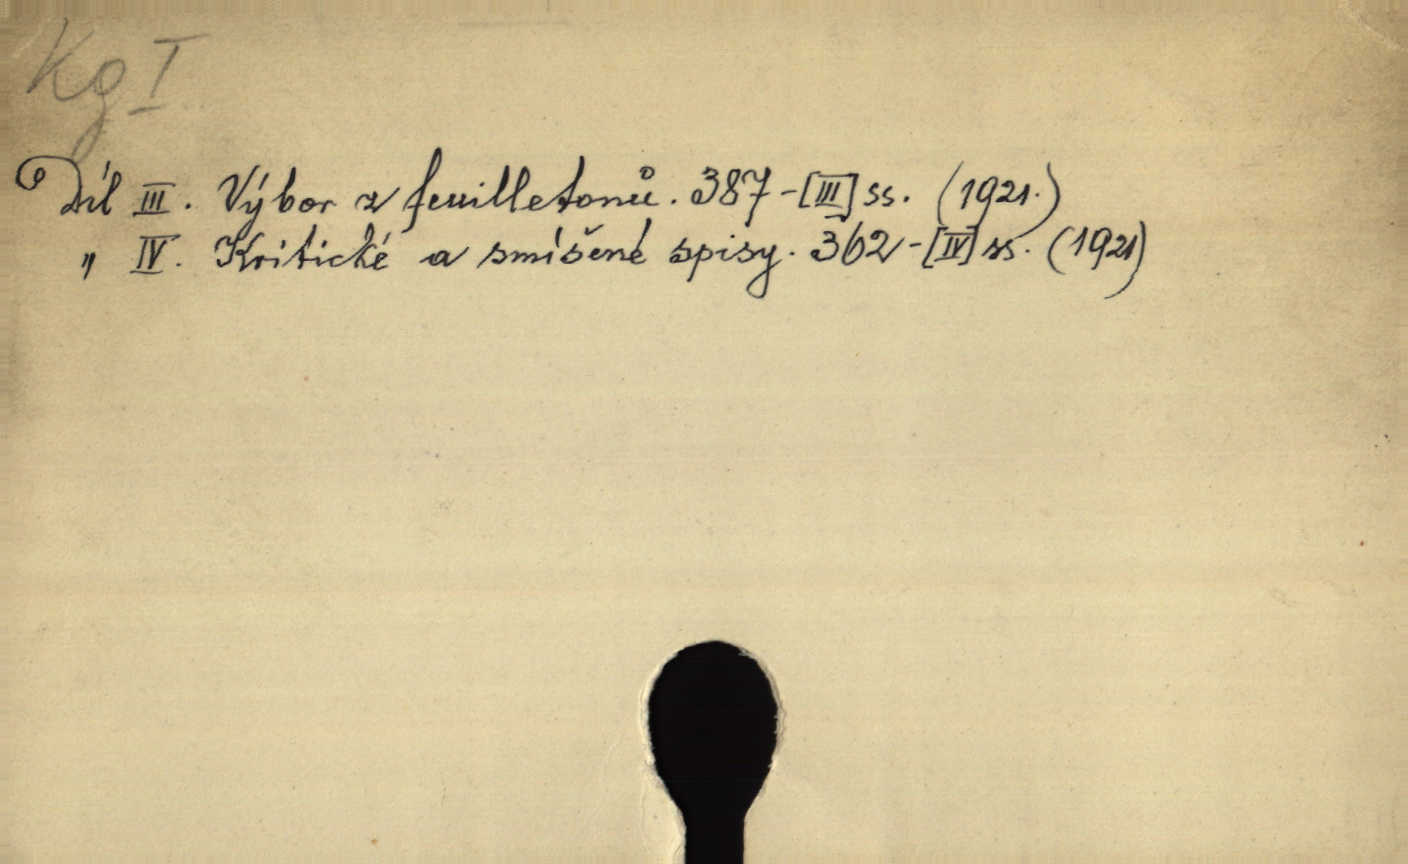 Kg I
Díl III. Výbor z feuilletonů. 387-[III] ss. (1921.)
" IV. Kritické a smíšené spisy. 362-[IV] ss. (1921)